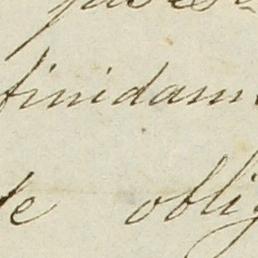 finidam
te oblig